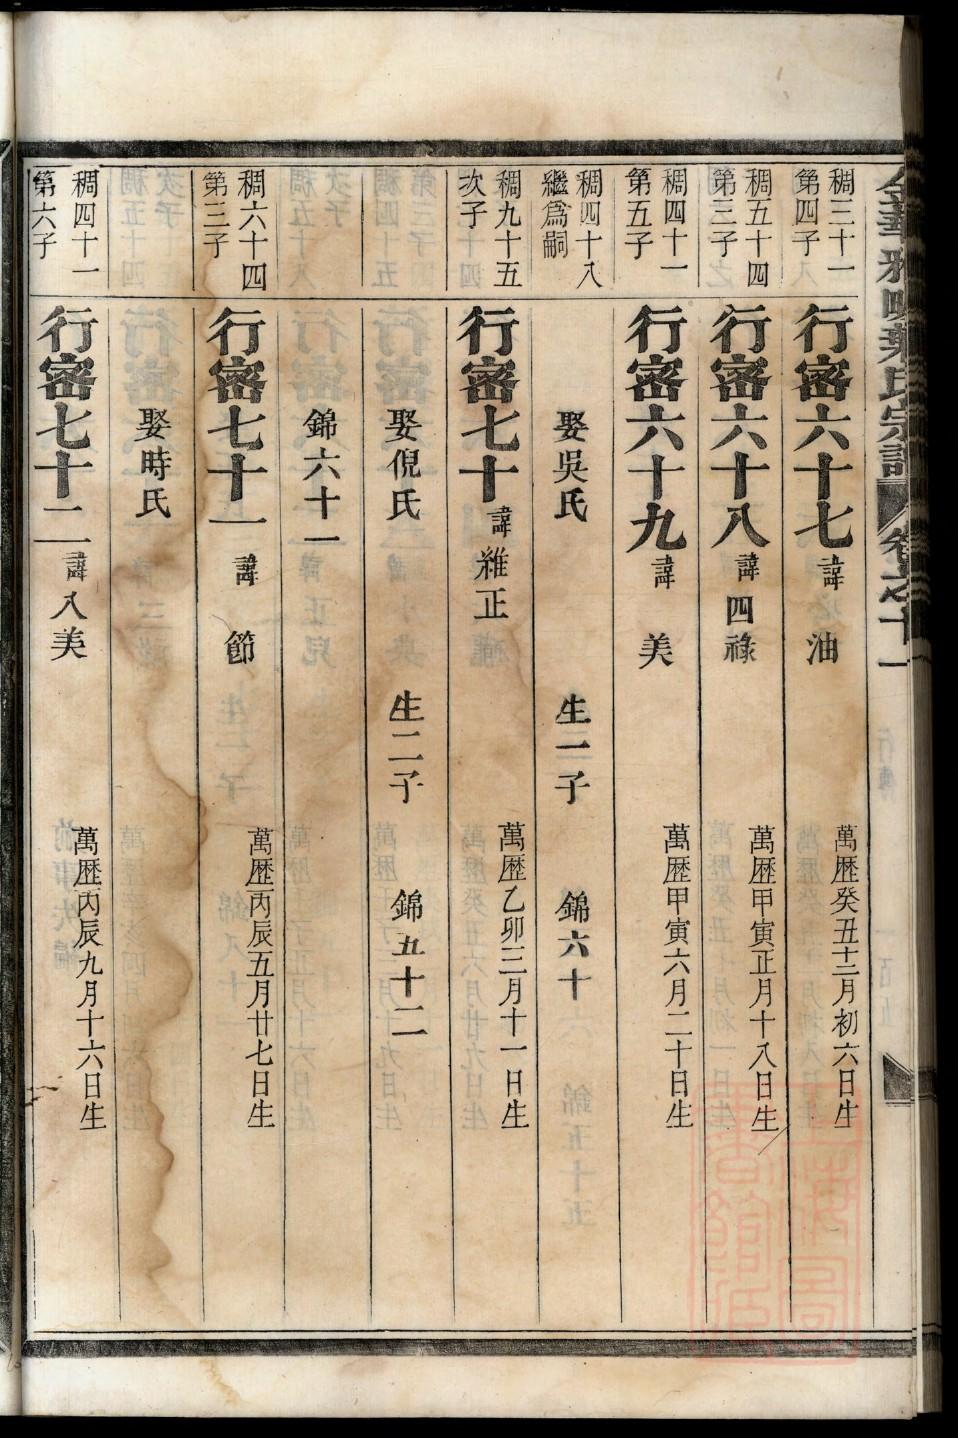 金華雅畈葉氏宗譜 卷之十一
稠三十一
第四子
行密六十七 諱 油 萬歷癸丑十二月初六日生
稠五十四
第三子
行密六十八 諱四祿 萬歷甲寅正月十八日生
稠四十一
第五子
行密六十九 諱 美 萬歷甲寅六月二十日生
稠四十八
繼爲嗣
娶吳氏 生一子 錦六十
稠九十五
次子
行密七十 諱維正 萬歷乙卯三月十一日生
娶倪氏 生二子 錦五十二
錦六十一
稠六十四
第三子
行密七十一 諱 節 萬歷丙辰五月廿七日生
娶時氏
稠四十一
第六子
行密七十二 諱八美 萬歷丙辰九月十六日生